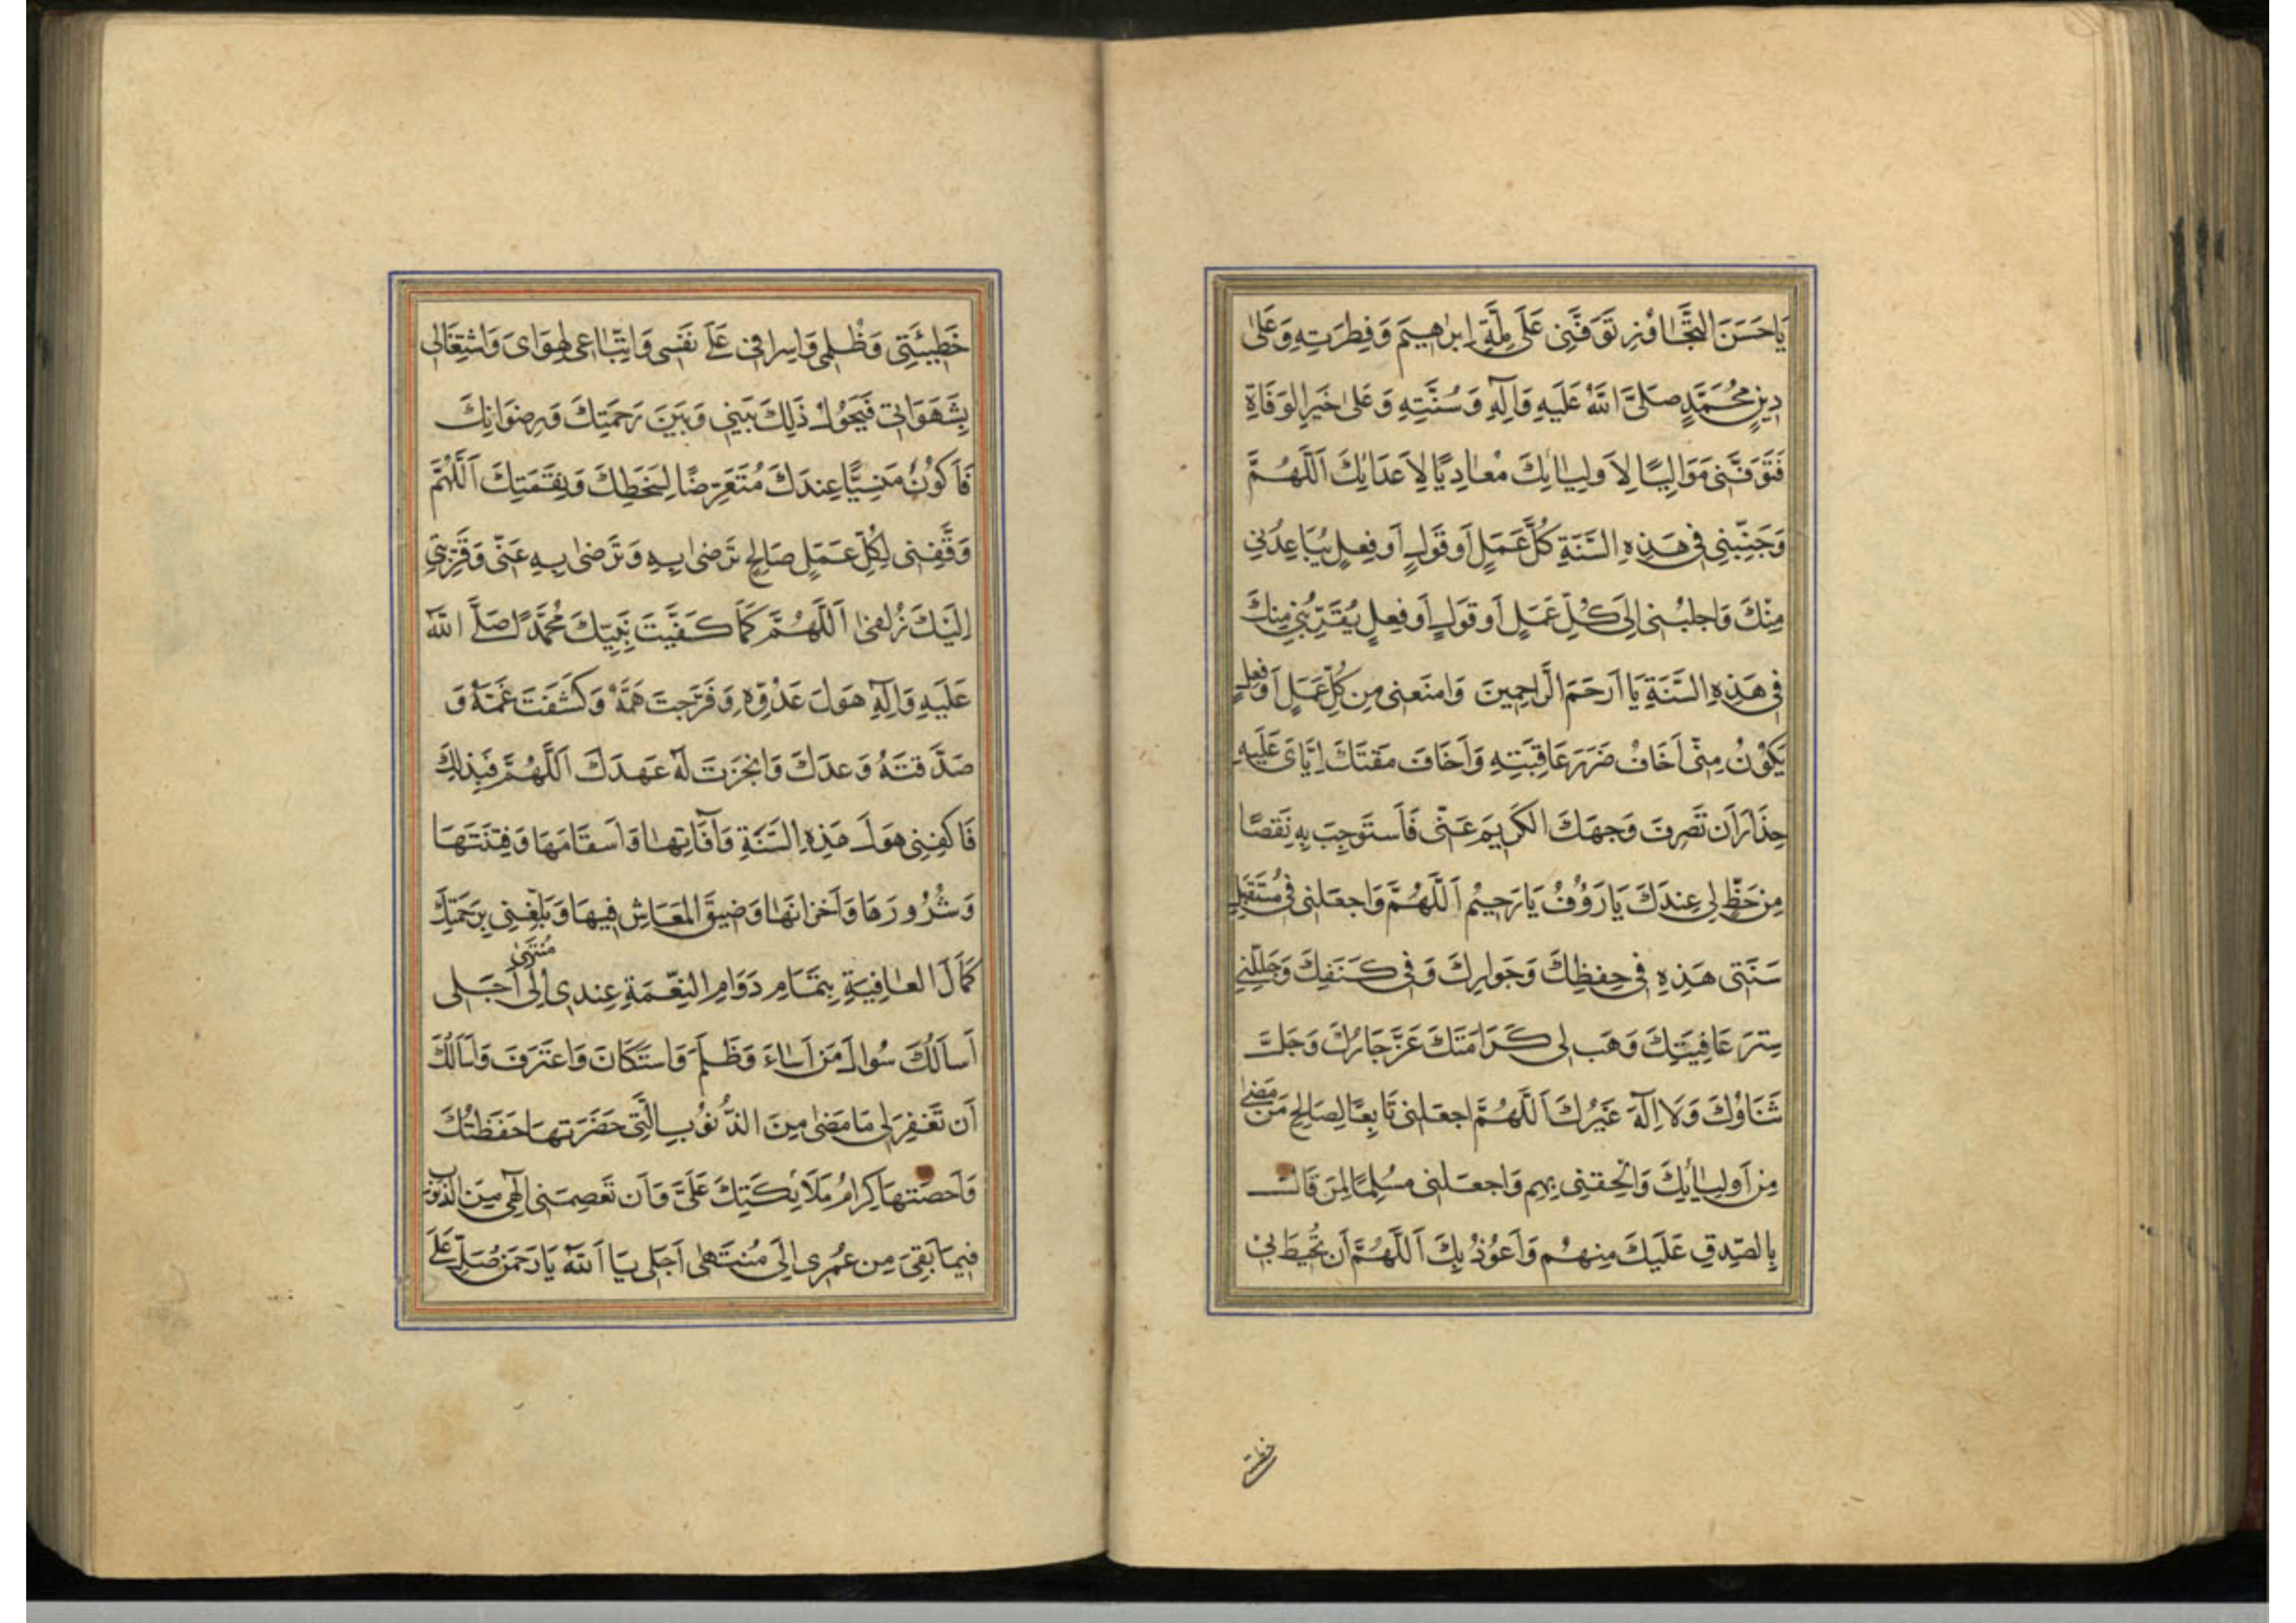 يَا حَسَنَ التَّجَاوُزِ تَوَفَّنِى عَلَى مِلَّةِ اِبرٰاهِيمَ وَفِطرَتِهِ وَعَلىٰ
دِينِ مُحَمَّدٍ صَلَّى اللّٰهُ عَلَيهِ وَآلِهِ وَسُنَّتِهِ وَعَلىٰ خَيرِ الوَفَاةِ
فَتَوَفَّنِى مَوَالِيًا لِاَولِيٰائِكَ مُعٰادِيًا لِاَعدَائِكَ اَللّٰهُمَّ
وَجَنِّبنِى فِى هَذِهِ السَّنَةِ كُلَّ عَمَلٍ اَو قَولٍ اَو فِعلٍ يُبَاعِدُنِى
مِنكَ وَاجلِبنِى اِلَى كُلِّ عَمَلٍ اَو قَولٍ اَو فِعلٍ يُقَرِّبُنِى مِنكَ
فِى هَذِهِ السَّنَةِ يَا اَرحَمَ الرَّاحِمِينَ وَامنَعنِى مِن كُلِّ عَمَلٍ اَو فِعلٍ
يَكُونُ مِنِّى اَخَافُ ضَرَرَ عَاقِبَتِهِ وَاَخَافُ مَقتَكَ اِيَّاىَ عَلَيهِ
حِذَارَ اَن تَصرِفَ وَجهَكَ الكَرِيمَ عَنِّى فَاَستَوجِبَ بِهِ نَقصًا
مِن حَظٍّ لِى عِندَكَ يَا رَؤُفُ يَا رَحِيمُ اَللّٰهُمَّ وَاجعَلنِى فِى مُستَقبَلِ
سَنَتِى هَذِهِ فِى حِفظِكَ وَجَوارِكَ وَفِى كَنَفِكَ وَجَلِّلنِى
سِترَ عَافِيَتِكَ وَهَب لِى كَرَامَتَكَ عَزَّ جَارُكَ وَجَلَّ
ثَنَاؤُكَ وَلَا اِلٰهَ غَيرُكَ اَللّٰهُمَّ اجعَلنِى تَابِعًا لِصَالِحِ مَن مَضىٰ
مِن اَولِيٰائِكَ وَاَلحِقنِى بِهِم وَاجعَلنِى مُسلِمًا لِمَن قَالَ
بِالصِّدقِ عَلَيكَ مِنهُم وَاَعُوذُ بِكَ اَللّٰهُمَّ اَن تُحِيطَ بِى
خَطِيئَتِى وَظُلمِى وَاِسرَافِى عَلىٰ نَفسِى وَاتِّبٰاعِى لِهَوَاىَ وَاشتِغَالِى
بِشَهَوَاتِى فَيَحُولُ ذَلِكَ بَينِى وَبَينَ رَحمَتِكَ وَرِضوَانِكَ
فَاَكُونُ مَنسِيًّا عِندَكَ مُتَعَرِّضًا لِسَخَطِكَ وَنِقمَتِكَ اَللّٰهُمَّ
وَفِّقنِى لِكُلِّ عَمَلٍ صَالِحٍ تَرضىٰ بِهِ وَتَرضىٰ بِهِ عَنِّى وَقَرِّبنِى
اِلَيكَ زُلفىٰ اَللّٰهُمَّ كَمَا كَفَيتَ نَبِيَّكَ مُحَمَّدًا صَلَّى اللّٰهُ
عَلَيهِ وَآلِهِ هَولَ عَدُوِّهِ وَفَرَّجتَ هَمَّهُ وَكَشَفتَ غَمَّهُ وَ
صَدَّقتَهُ وَعدَكَ وَانجَزتَ لَهُ عَهدَكَ اَللّٰهُمَّ فَبِذٰلِكَ
فَاكفِنِى هَولَ هَذِهِ السَّنَةِ وَآفَاتِهٰا وَاَسقَامَهَا وَفِتنَتَهَا
وَشُرُورَهَا وَاَحزانَهَا وَضِيقَ المَعَاشِ فِيهَا وَبَلِّغنِى بِرَحمَتِكَ
كَمَالَ العٰافِيَةِ بِتَمَامِ دَوَامِ النِّعمَةِ عِندِى اِلىٰ مُنتَهىٰ اَجَلِى
اَسأَلُكَ سُوالَ مَن اَسٰاءَ وَظَلَمَ وَاستَكَانَ وَاعتَرَفَ وَاَسأَلُكَ
اَن تَغفِرَ لِى مَا مَضىٰ مِنَ الذُّنُوبِ الَّتِى حَضَرَتهَا حَفَظَتُكَ
وَاَحصَتهَا كِرَامُ مَلَائِكَتِكَ عَلَىَّ وَاَن تَعصِمَنِى اِلٰهِى مِنَ الذُّنُوبِ
فِيمَا بَقِىَ مِن عُمُرِى اِلَى مُنتَهىٰ اَجَلِى يَا اَللّٰهُ يَا رَحمَنُ صَلِّ عَلَى